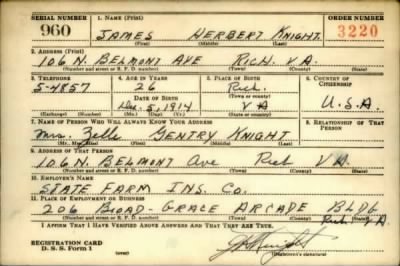 SERIAL NUMBER 1. NAME (Print) ORDER NUMBER
960 JAMES HERBERT KNIGHT 3220
(First) (Middle) (Last)
2. ADDRESS (Print)
106 N. BELMONT AVE RICH. VA.
(Number and street or R. F. D. number) (Town) (County) (State)
3. TELEPHONE 4. AGE IN YEARS 5. PLACE OF BIRTH 6. COUNTRY OF CITIZENSHIP
5-4857 26 Rich.
DATE OF BIRTH (Town or county)
Dec. 5, 1914 VA U.S.A.
(Exchange) (Number) (Mo.) (Day) (Yr.) (State or country)
7. NAME OF PERSON WHO WILL ALWAYS KNOW YOUR ADDRESS 8. RELATIONSHIP OF THAT PERSON
Mrs. Zella GENTRY KNIGHT
(First) (Middle) (Last)
9. ADDRESS OF THAT PERSON
106 N. BELMONT Ave Rich VA
(Number and street or R. F. D. number) (Town) (County) (State)
10. EMPLOYER'S NAME
STATE FARM INS. CO.
11. PLACE OF EMPLOYMENT OR BUSINESS
206 BROAD-GRACE ARCADE BLDG
Rich. VA.
(Number and street or R. F. D. number) (Town) (County) (State)
I AFFIRM THAT I HAVE VERIFIED ABOVE ANSWERS AND THAT THEY ARE TRUE.
REGISTRATION CARD
D. S. S. Form 1
(Registrant's signature)